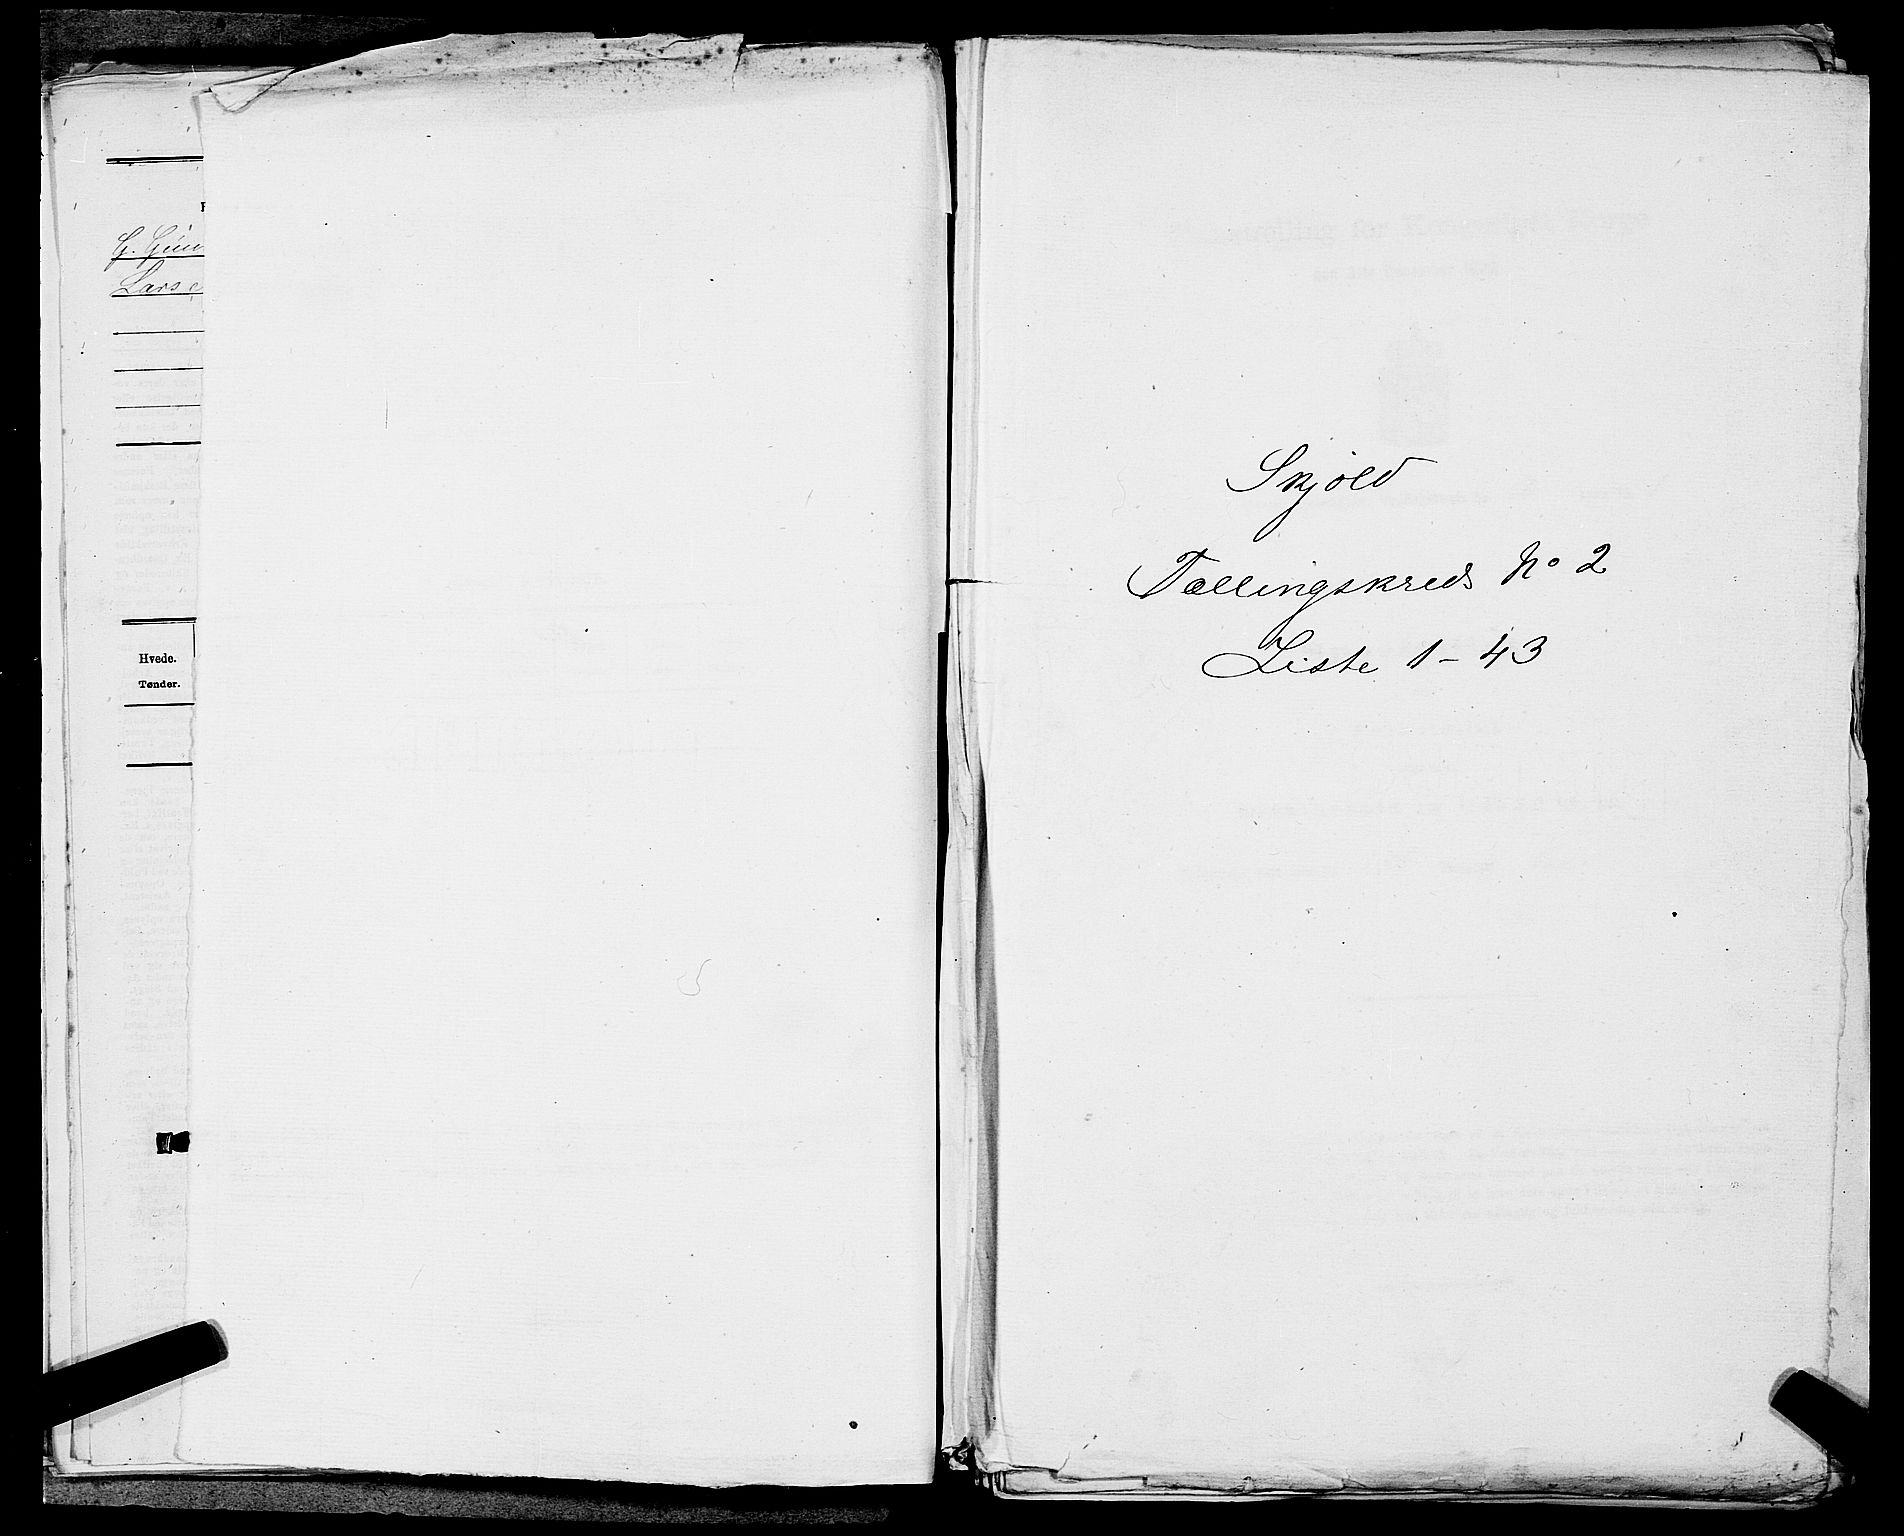 G. Gun
Lars
Hvede.
Tønder.
Skjold
Tællingskreds No 2
Liste 1-43